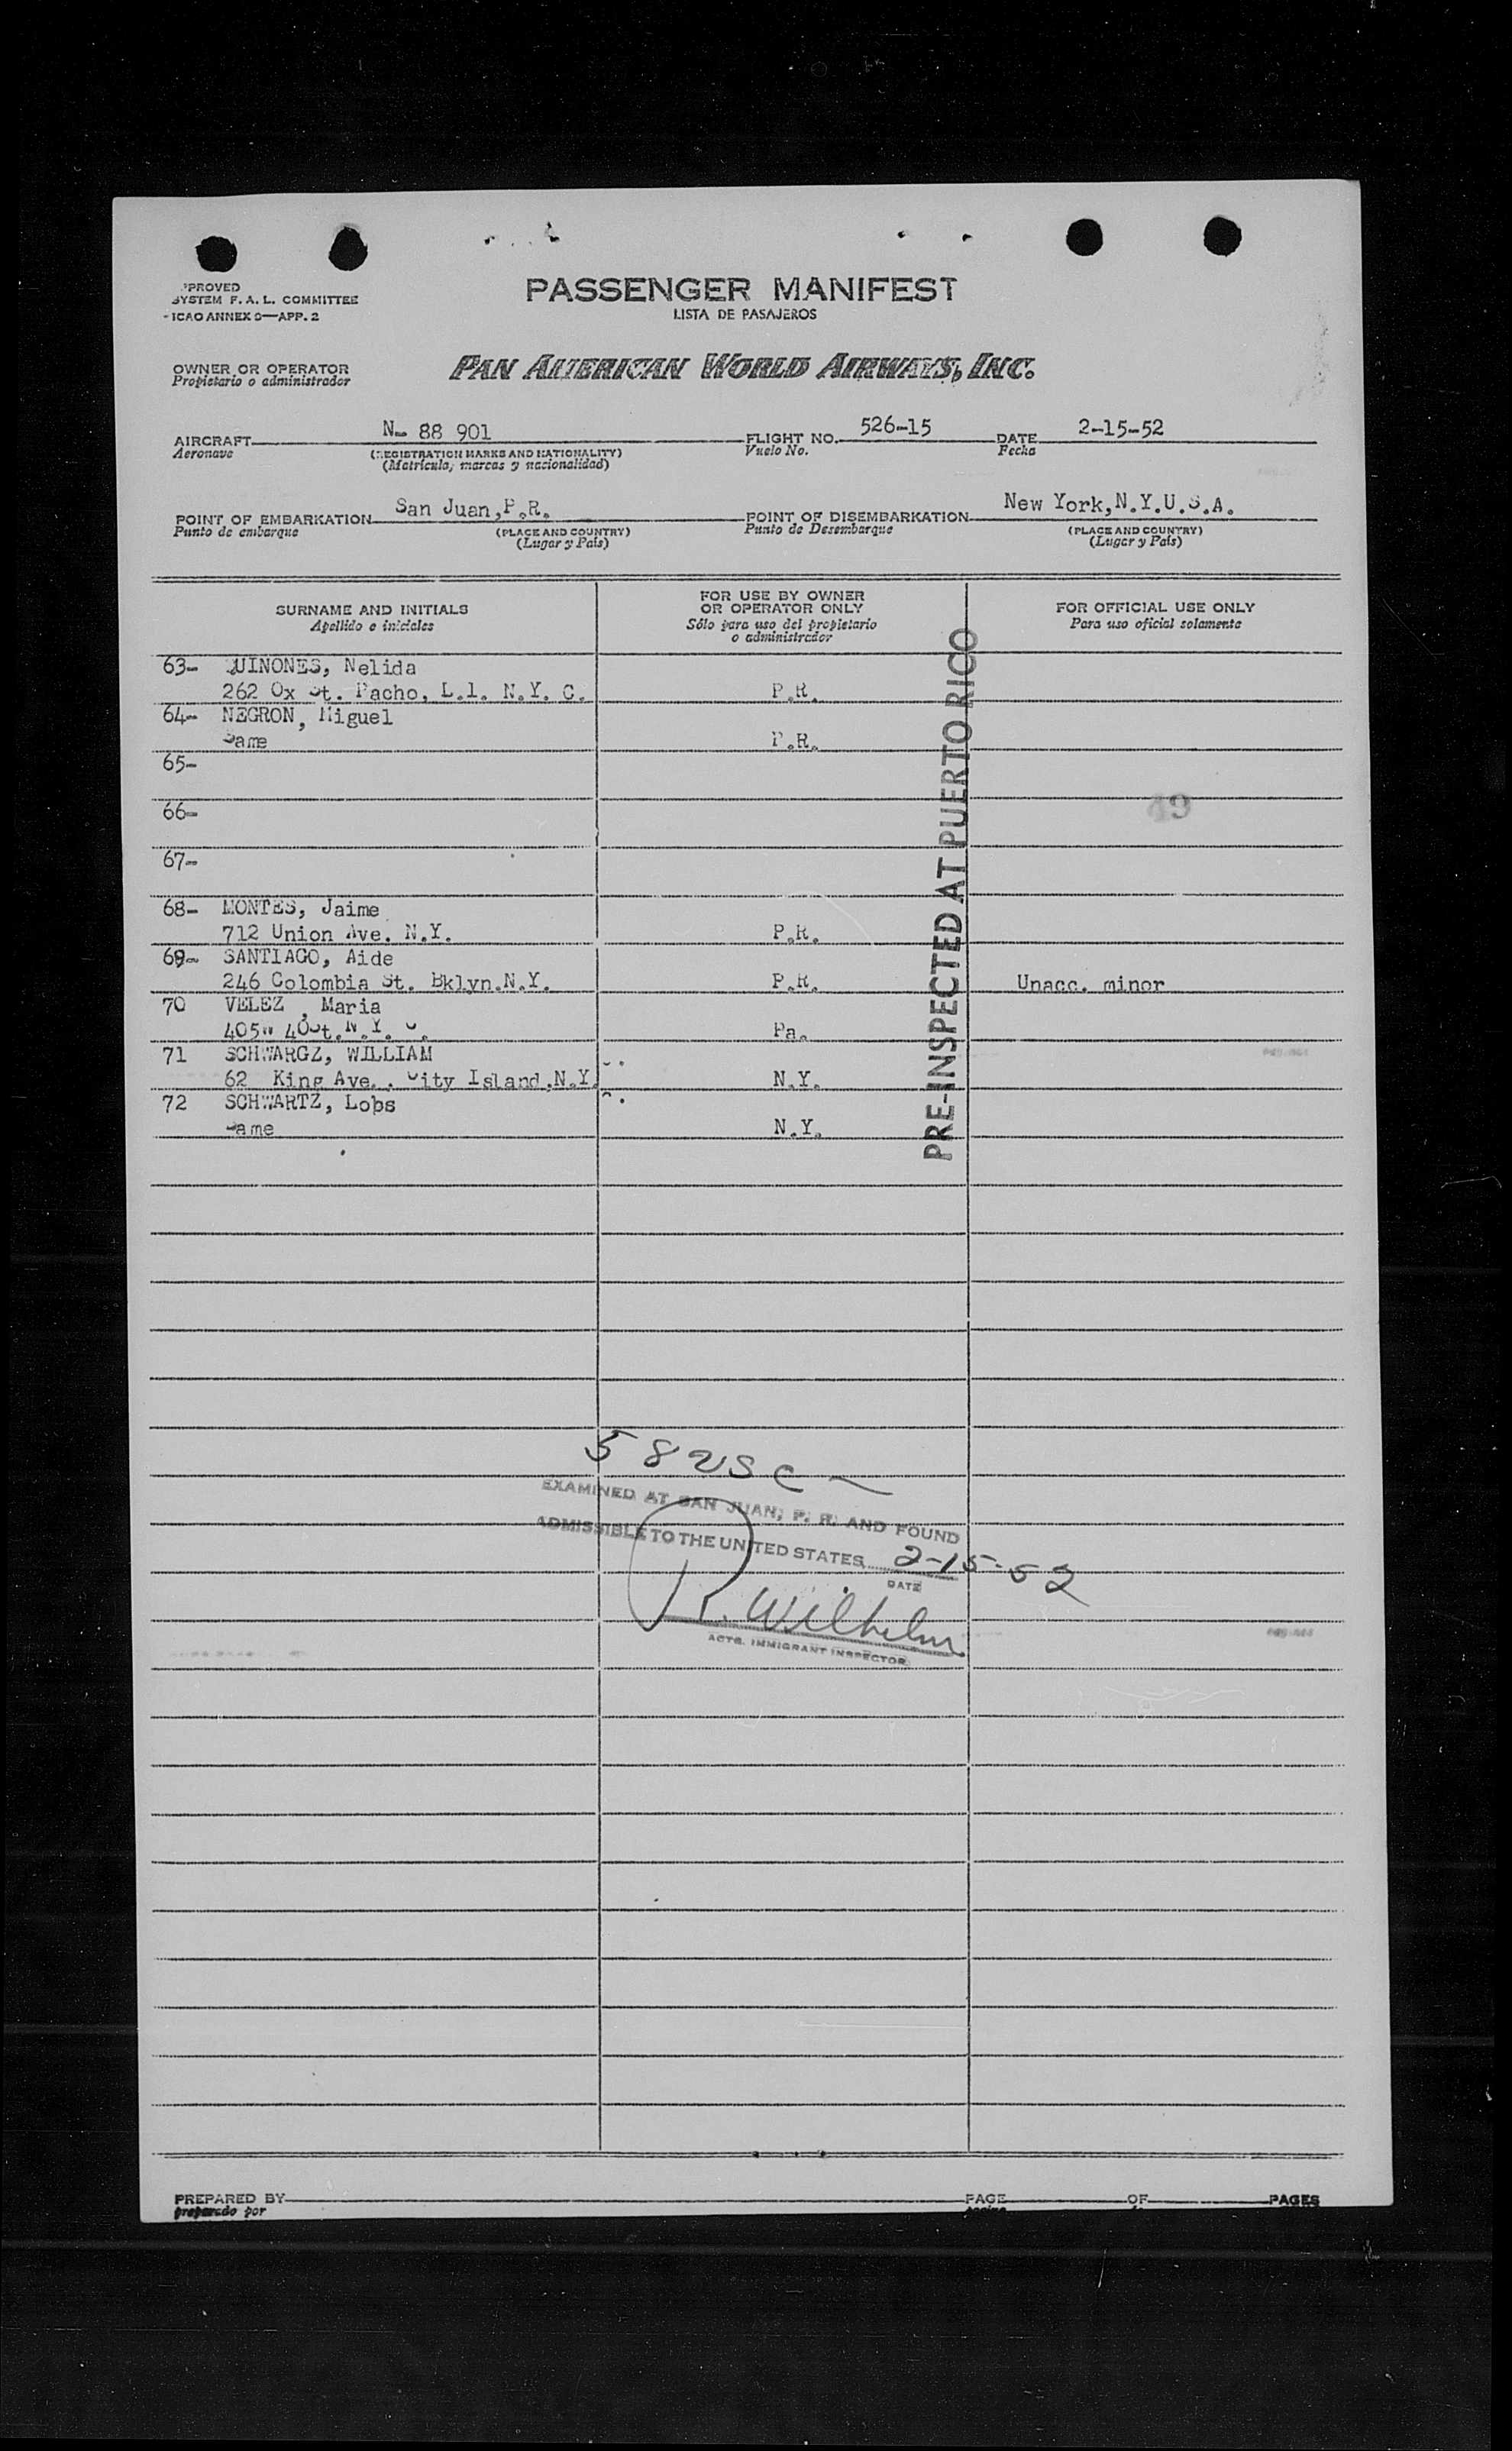 PROVED
SYSTEM F. A. L. COMMITTEE
ICAO ANNEX 9—APP. 2
PASSENGER MANIFEST
LISTA DE PASAJEROS
OWNER OR OPERATOR
Propietario o administrador
PAN AMERICAN WORLD AIRWAYS, INC.
AIRCRAFT N- 88 901 FLIGHT NO. 526-15 DATE 2-15-52
Aeronave (REGISTRATION MARKS AND NATIONALITY) Vuelo No. Fecha
(Matrícula, marcas y nacionalidad)
POINT OF EMBARKATION San Juan,P.R. POINT OF DISEMBARKATION New York,N.Y.U.S.A.
Punto de embarque (PLACE AND COUNTRY) Punto de Desembarque (PLACE AND COUNTRY)
(Lugar y País) (Lugar y País)
SURNAME AND INITIALS
Apellido e iniciales
FOR USE BY OWNER
OR OPERATOR ONLY
Sólo para uso del propietario
o administrador
FOR OFFICIAL USE ONLY
Para uso oficial solamente
63- QUINONES, Nelida
262 Ox St. Pacho, L.l. N.Y. C. P.R.
64- NEGRON, Miguel
Same P.R.
65-
66- 49
67-
68- MONTES, Jaime
712 Union Ave. N.Y. P.R.
69- SANTIAGO, Aide
246 Colombia St. Bklyn.N.Y. P.R. Unacc. minor
70 VELEZ , Maria
405W 40St.N.Y. C. Pa.
71 SCHWARGZ, WILLIAM
62 King Ave., City Island,N.Y. N.Y.
72 SCHWARTZ, Lobs
Same N.Y.
PRE-INSPECTED AT PUERTO RICO
58 USC
EXAMINED AT SAN JUAN, P. R. AND FOUND
ADMISSIBLE TO THE UNITED STATES 2-15-52
DATE
R. Wilhelm
ACTG. IMMIGRANT INSPECTOR
PREPARED BY PAGE OF PAGES
preparado por